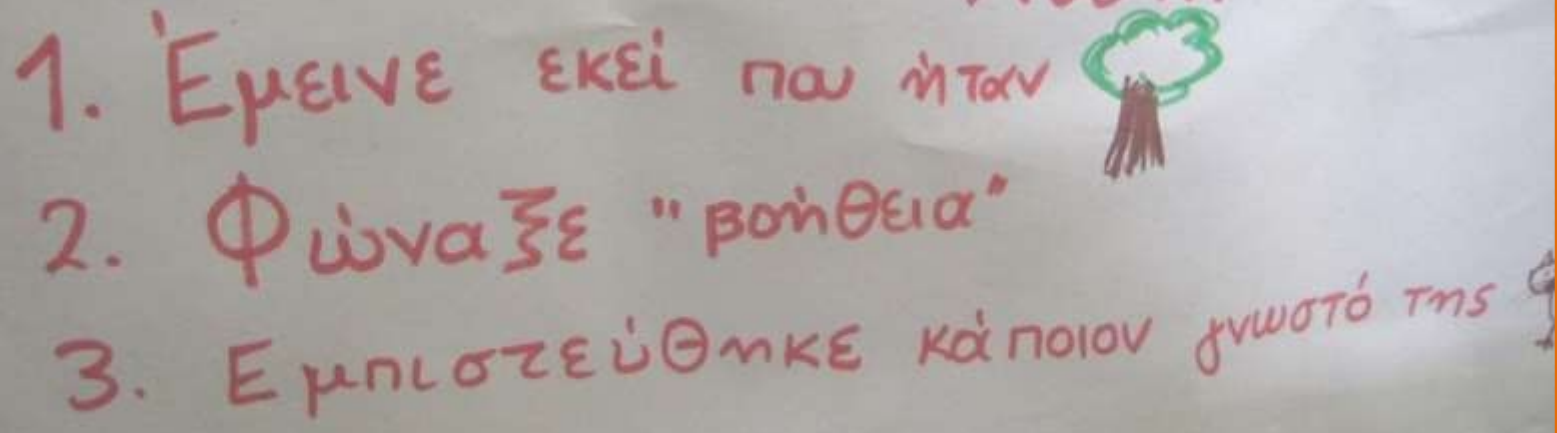 1. Έμεινε εκεί που ήταν
2. Φώναξε "βοήθεια"
3. Εμπιστεύθηκε κάποιον γνωστό της